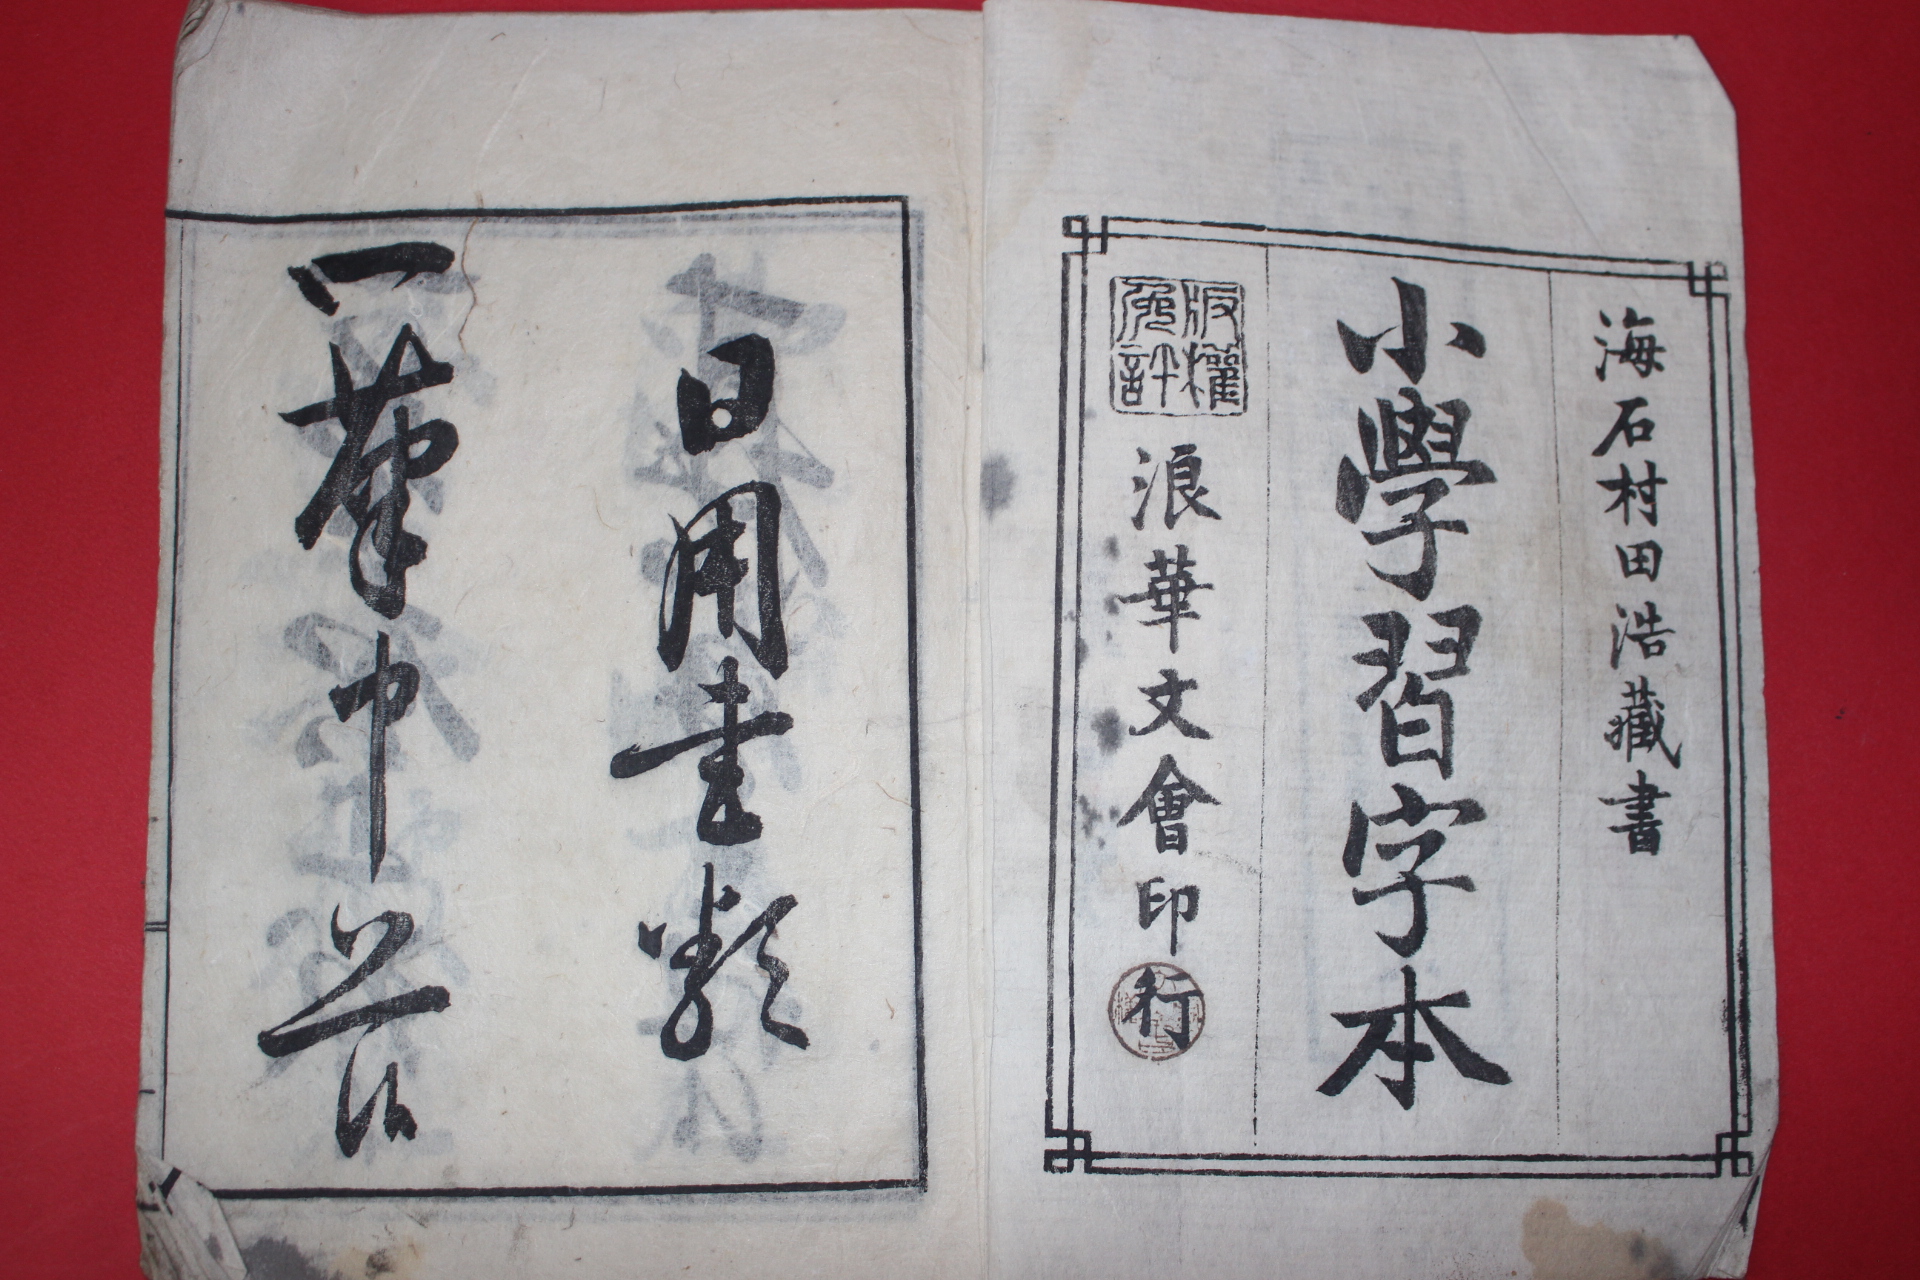 海石村田浩藏書
小學習字本
版權免許
浪華文會印行
日用書類
一筆申上候